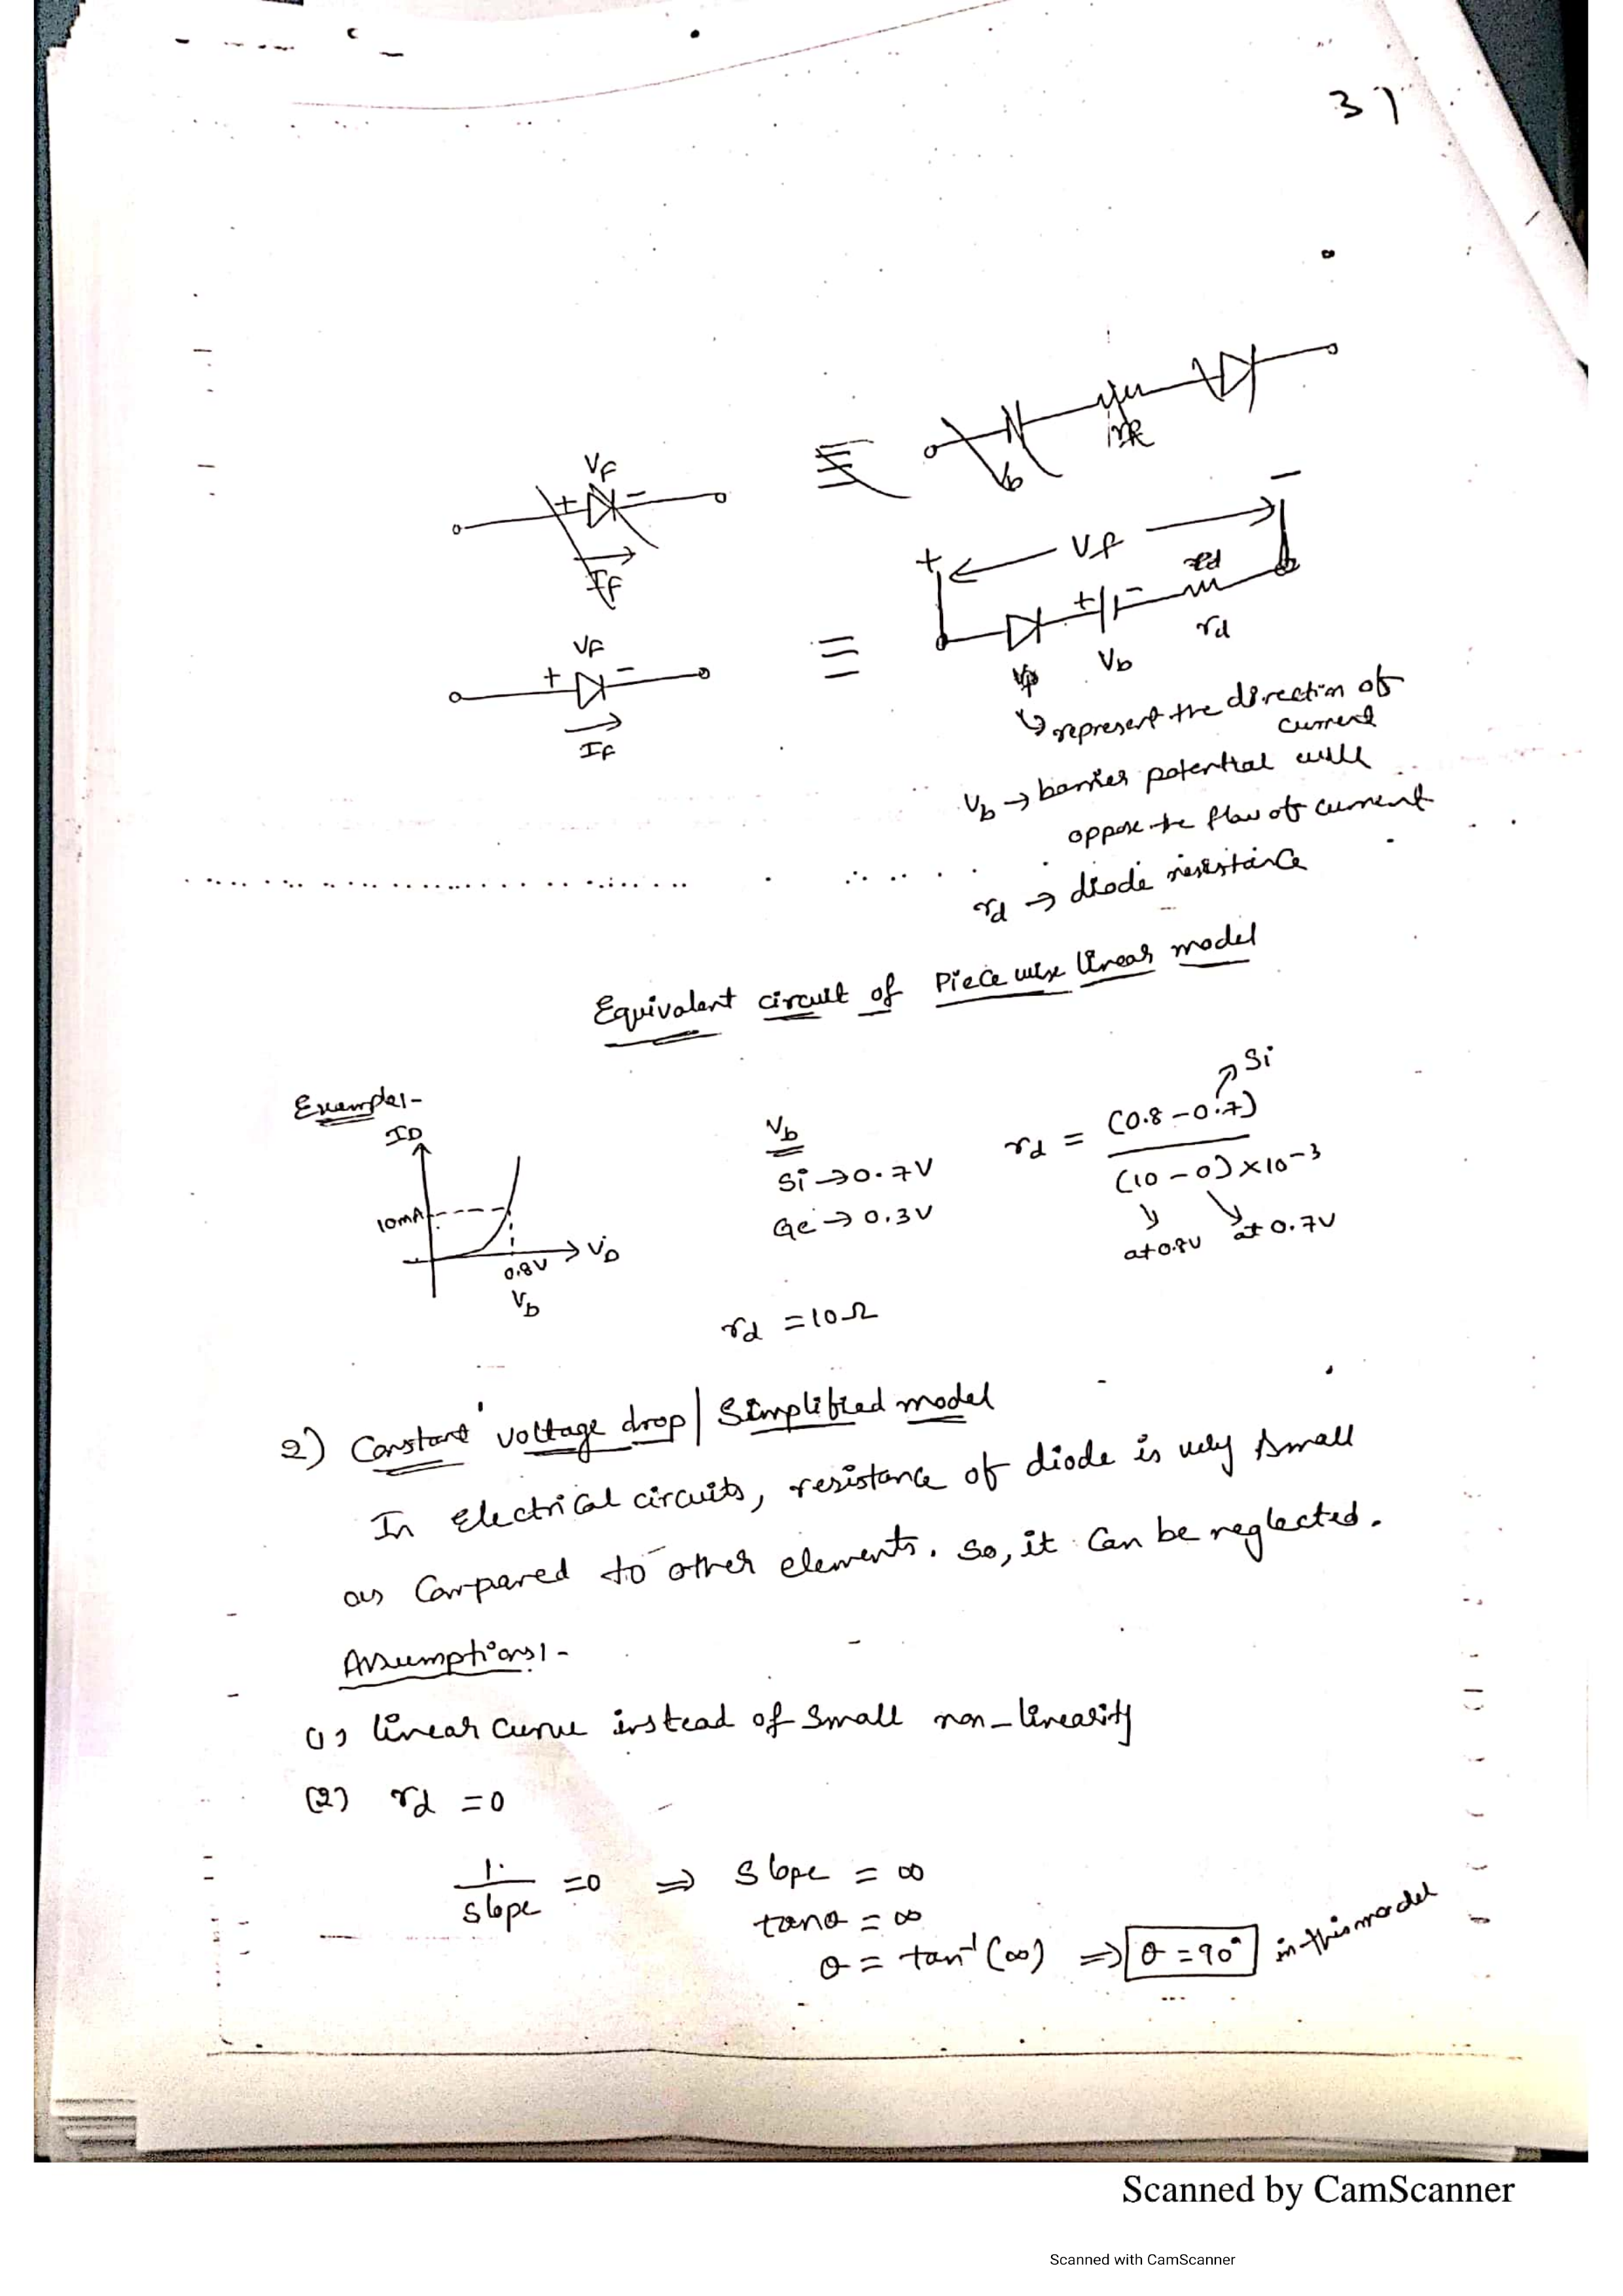 31
VF
+ -
IF
≡
Vb
VF
+ -
IF
≡
+ ← Vf → -
rd
+ -
Vb
rd
↳ represent the direction of
current
Vb → barrier potential will
oppose the flow of current
rd → diode resistance
Equivalent circuit of Piece wise linear model
Example:-
ID
10mA
0.8V
VD
Vb
Vb
Si → 0.7V
Ge → 0.3V
rd = (0.8 - 0.7) / (10 - 0) × 10^-3
Si
at 0.8V at 0.7V
rd = 10Ω
2) Constant voltage drop | Simplified model
In Electrical circuits, resistance of diode is very small
as Compared to other elements. So, it Can be neglected.
Assumptions:-
(1) linear curve instead of small non-linearity
(2) rd = 0
1/slope = 0 ⇒ slope = ∞
tanθ = ∞
θ = tan^-1 (∞) ⇒ θ = 90° in this model
Scanned by CamScanner
Scanned with CamScanner